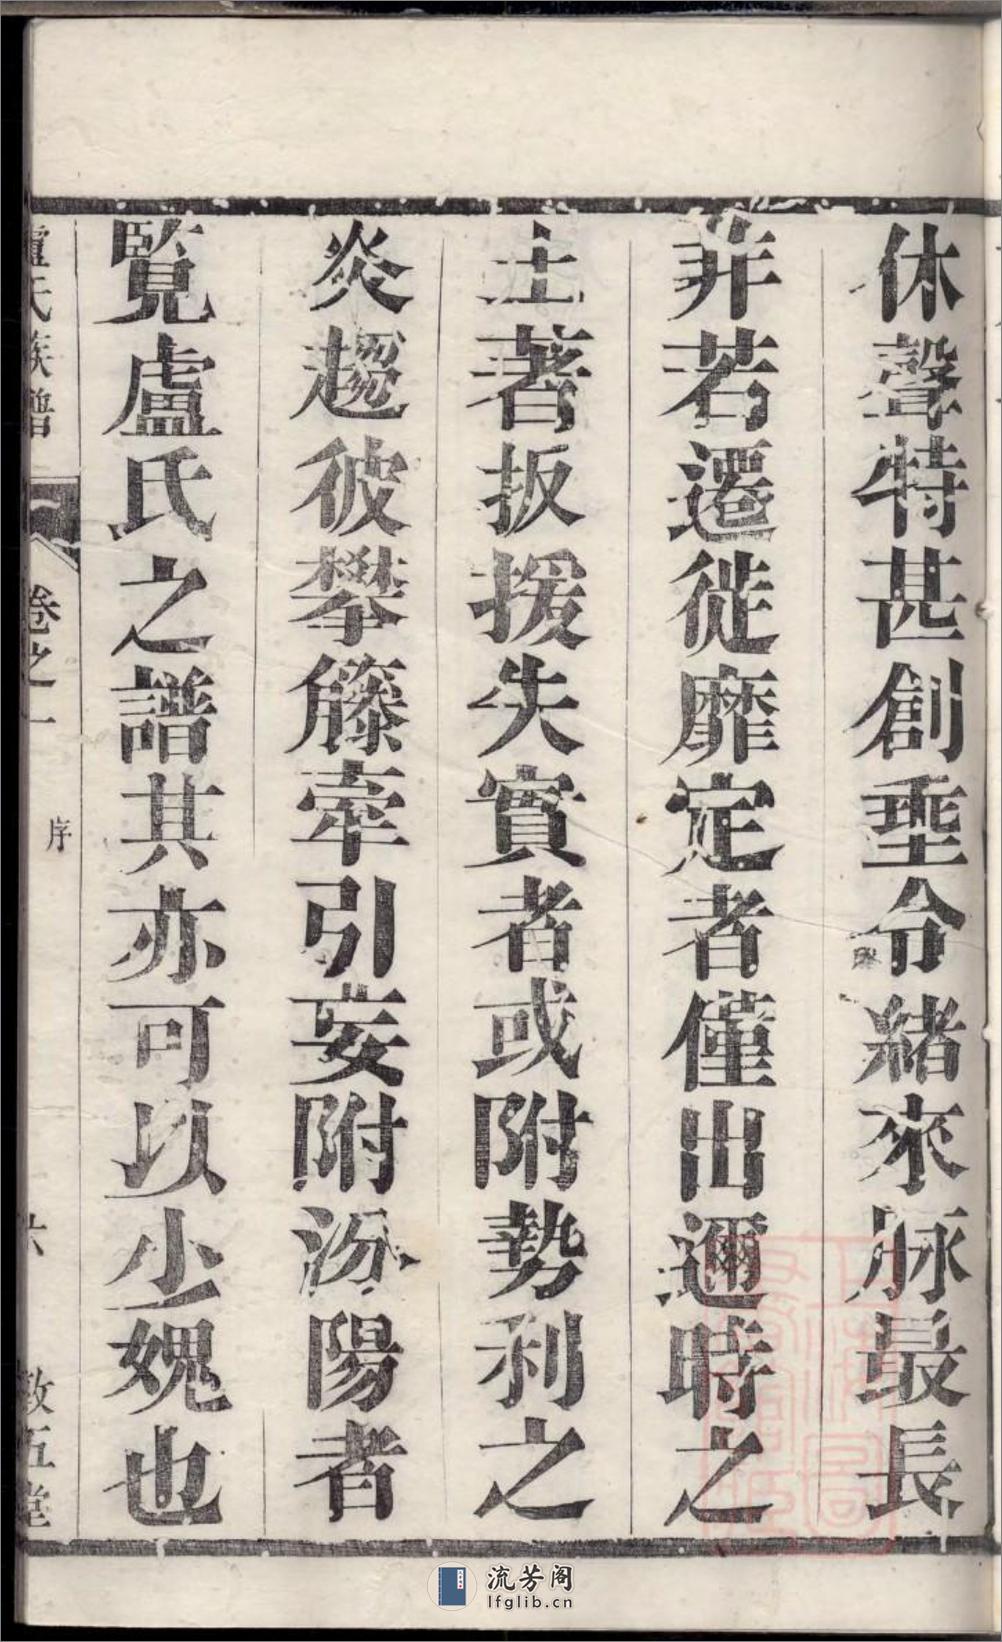 休聲特甚創垂令緒來脉最長
非若遷徙靡定者僅出邇時之
土著扳援失實者或附勢利之
炎趨彼攀籐牽引妄附汾陽者
覽盧氏之譜其亦可以少媿也
盧氏族譜
卷之一
序
六
敦五堂
流芳阁
lfglib.cn